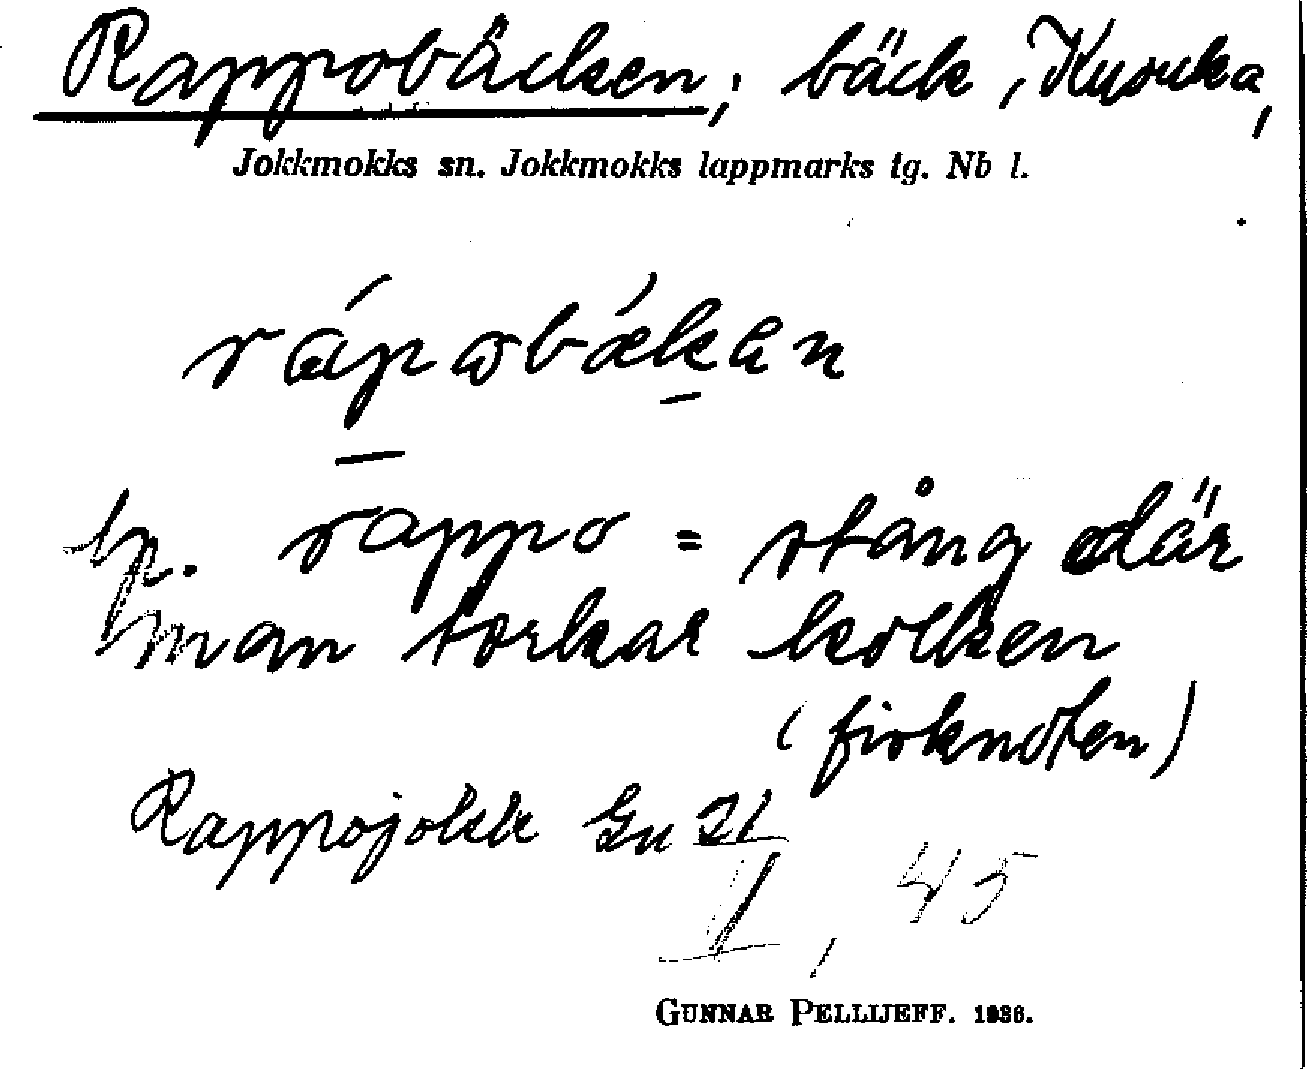 Rappobäcken; bäck, Kusuka,
Jokkmokks sn. Jokkmokks lappmarks tg. Nb l.
rápobǽkan
lp. rappo = stång där
man torkar kolken
(fisknoten)
Rappojokk Gn 21
V, 45
GUNNAR PELLIJEFF. 1936.